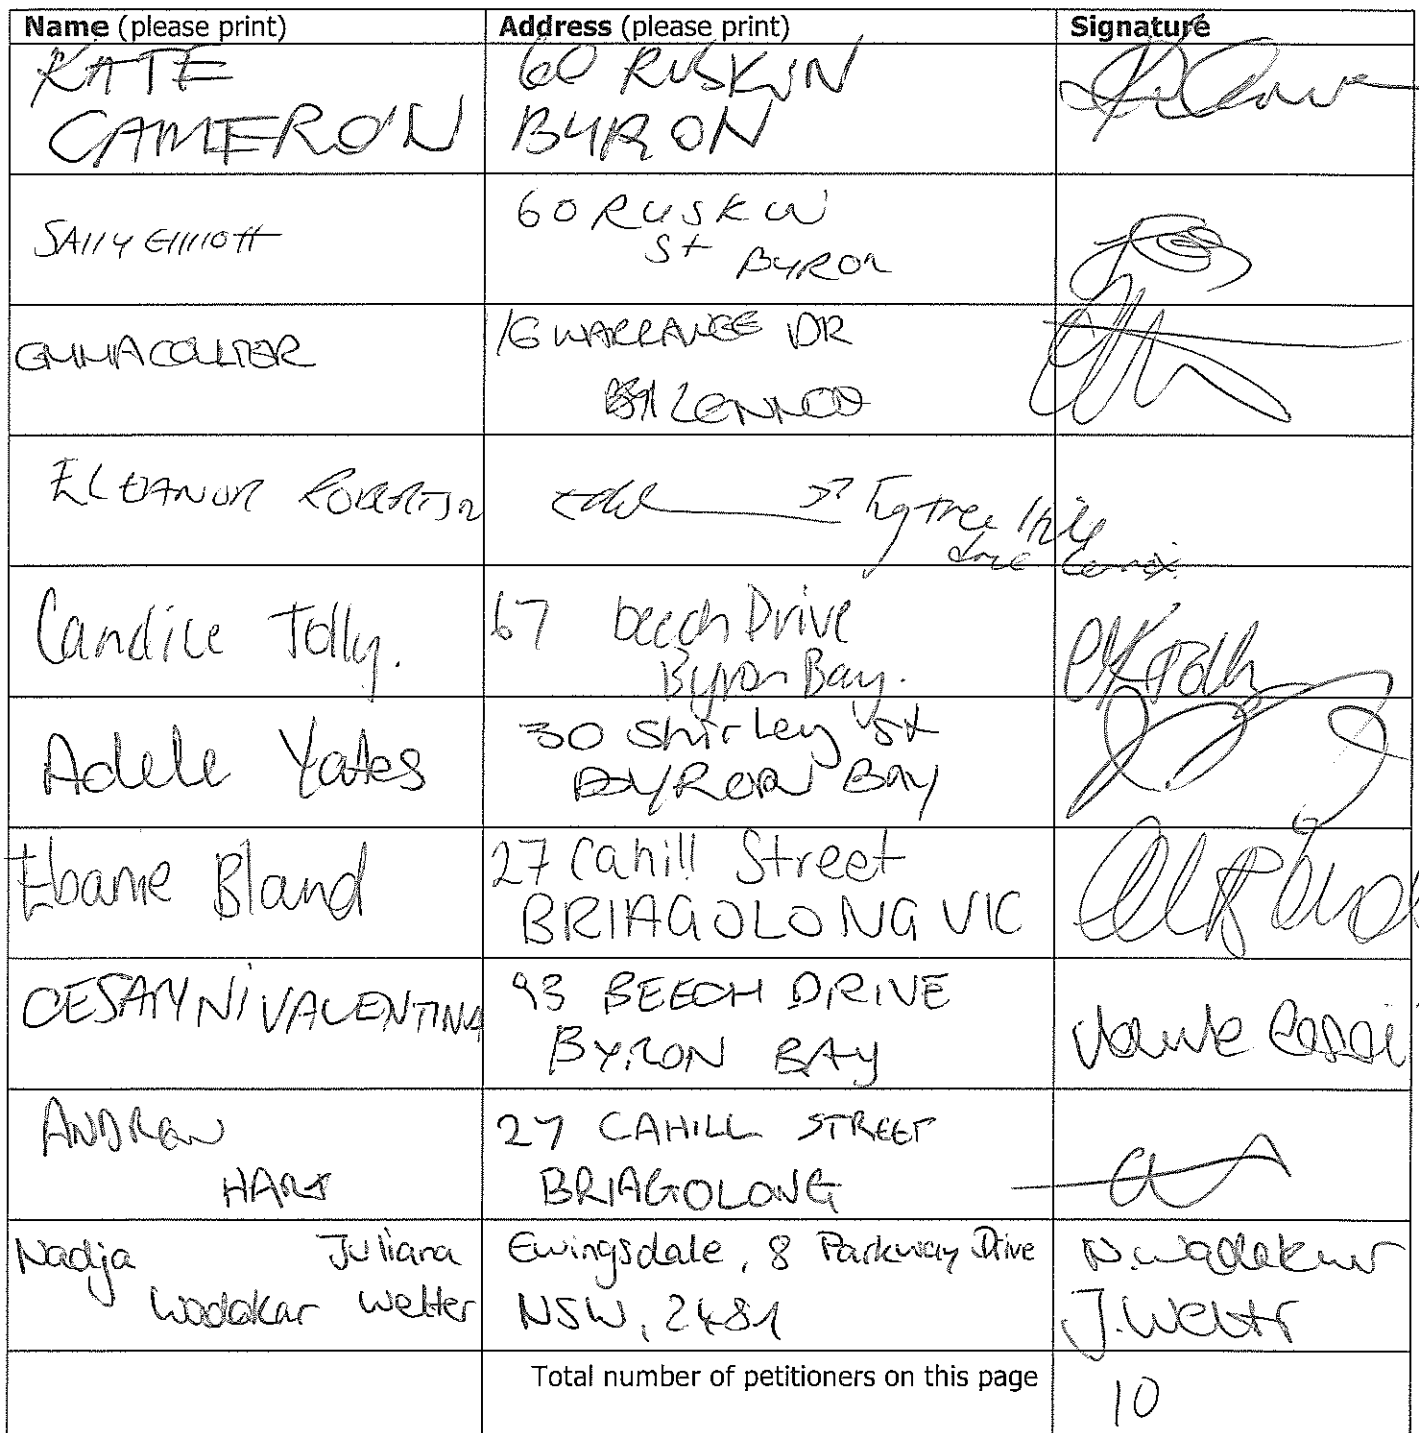 Name (please print) Address (please print) Signature
KATE 60 RUSKIN
CAMERON BYRON
SAllY Elliott 60 RUSKIN
St BYRON
EMMA COLLIER 16 WARRANGE DR
LENNOX
ELEANOR ROBERTSON Fig tree Hill
Candice Tolly. 67 beech Drive
Byron Bay.
Adele Yates 30 Shirley St
BYRON BAY
Ebanie Bland 27 Cahill Street
BRIAGOLONG VIC
CESARYNI VALENTINA 93 BEECH DRIVE
BYRON BAY
ANDREW 27 CAHILL STREET
HART BRIAGOLONG
Nadja Juliana Ewingsdale, 8 Parkway Drive N. Wadekar
Wadekar Welter NSW, 2481 J. Welter
Total number of petitioners on this page 10